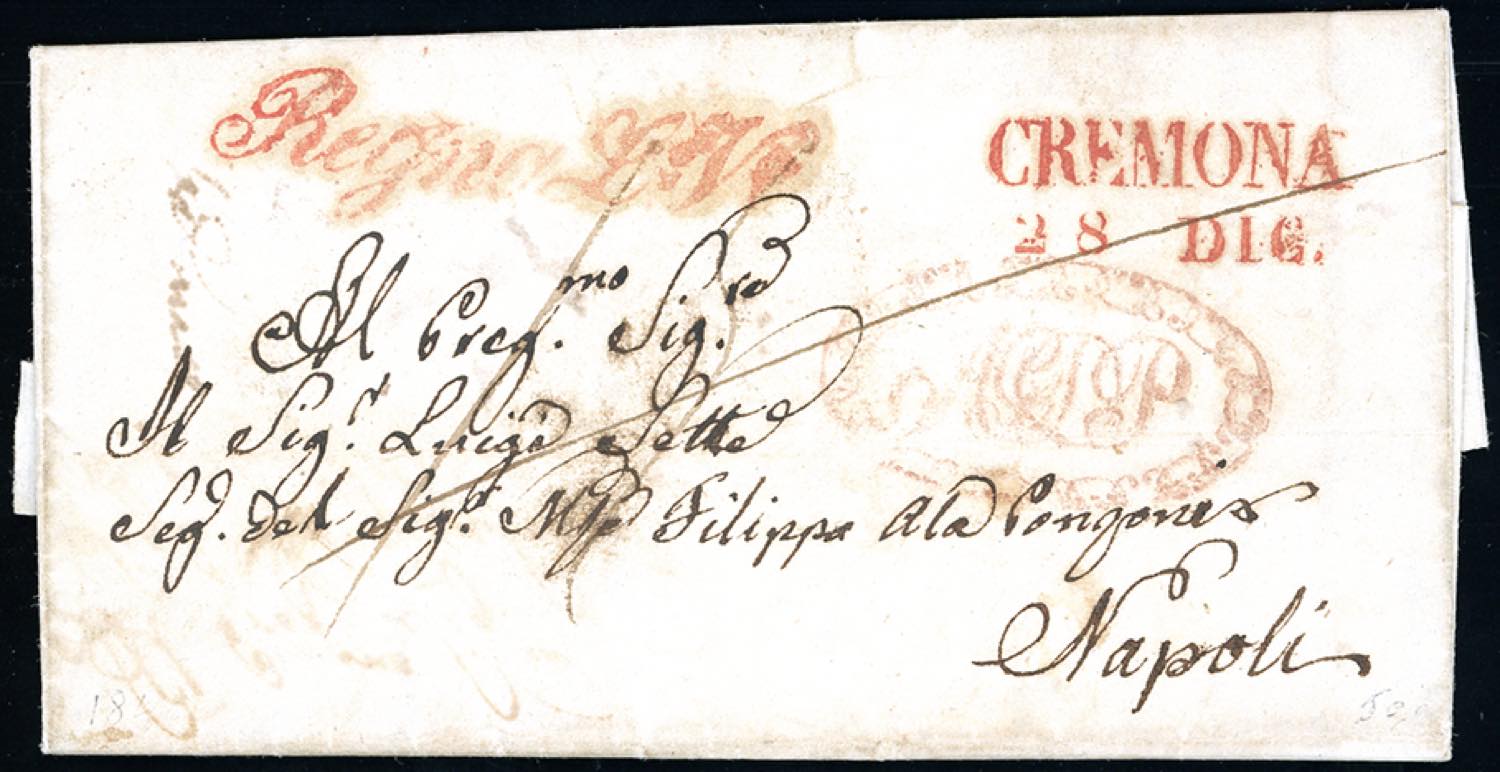 Regno L:V:
CREMONA
28 DIC.
Al Preg.mo Sig.re
Al Sig.r Luigi Sette
Seg. del Sig.r Mse Filippo Ala Ponzone
Napoli
18
50